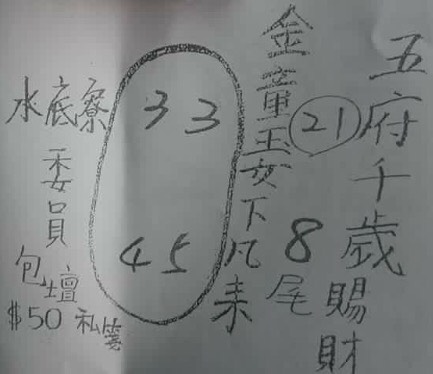 五府千歲賜財
21
8尾
金童玉女下凡來
33
45
水底寮
委員
包壇
$50 私簽